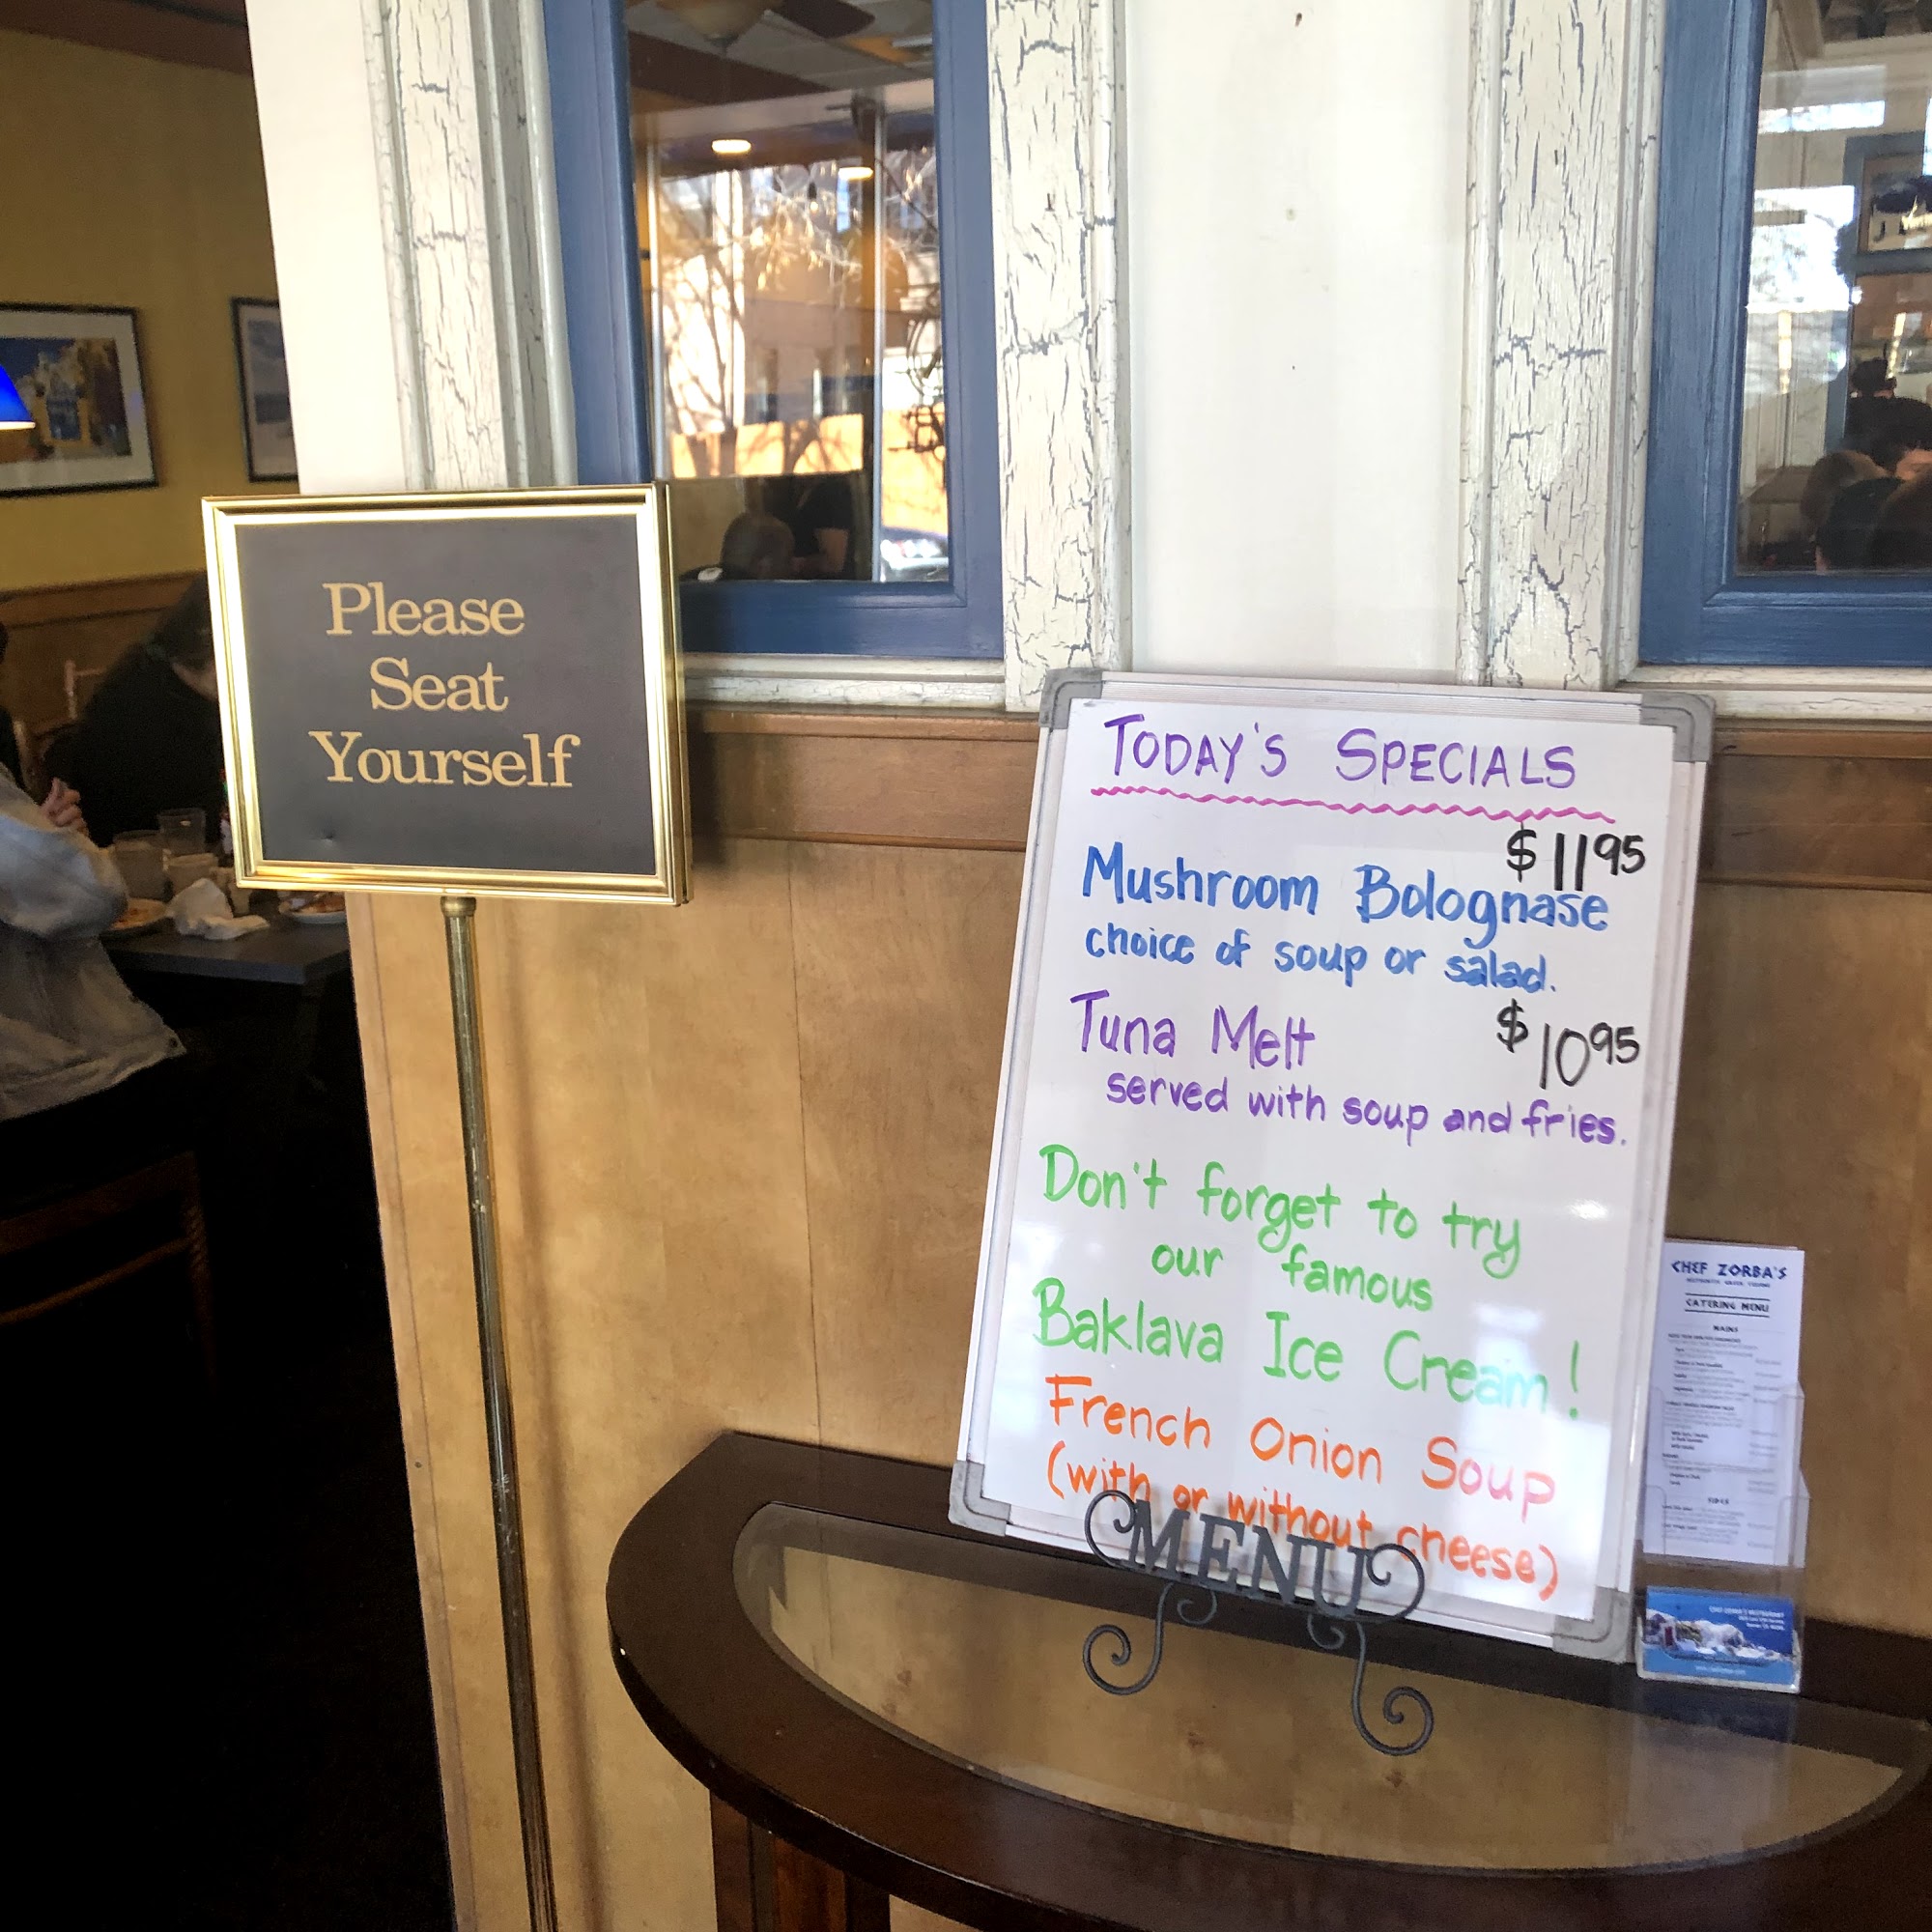 Please
Seat
Yourself
TODAY'S SPECIALS
$11 95
Mushroom Bolognase
choice of soup or salad.
Tuna Melt $10 95
served with soup and fries.
Don't forget to try
our famous
Baklava Ice Cream!
French Onion Soup
(with or without cheese)
MENU
CHEF ZORBA'S
CATERING MENU
MAINS
SIDES